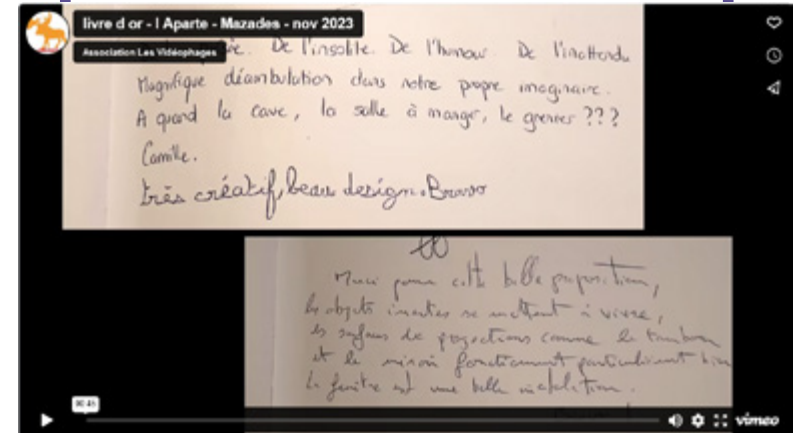 livre d or - l Aparte - Mazades - nov 2023
Association Les Vidéophages
De l'insolite. De l'humour De l'inattendu
Magnifique déambulation dans notre propre imaginaire.
A quand la cave, la salle à manger, le grenier ???
Camille.
très créatif, beau design. Bravo
Merci pour cette belle proposition,
les objets inertes se mettent à vivre,
les surfaces de projections comme le tambour
et le miroir fonctionnent particulièrement bien
La fenêtre est une belle installation.
00:45
vimeo